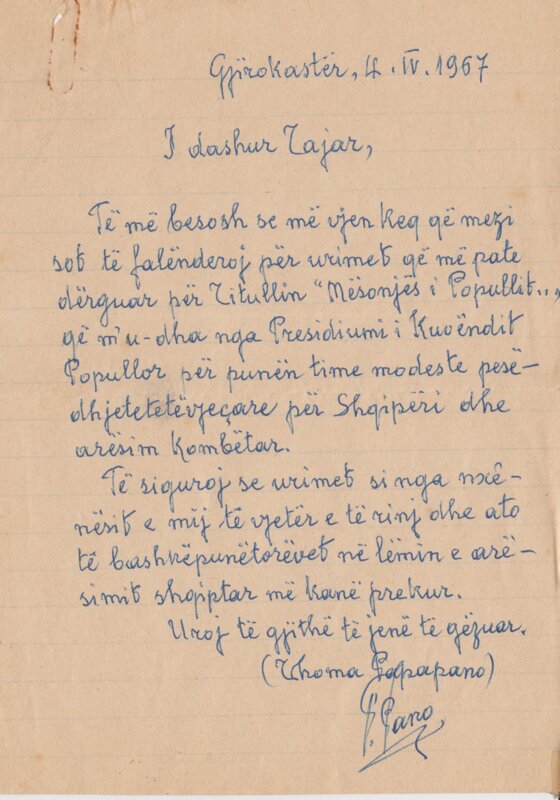 Gjirokastër, 4. IV. 1967
I dashur Zajar,
Të më besosh se më vjen keq që mezi
sot të falënderoj për urimet që më pate
dërguar për Titullin "Mësonjës i Popullit..,
që m'u-dha nga Presidiumi i Kuvëndit
Popullor për punën time modeste pesë-
dhjetetetëvjeçare për Shqipëri dhe
arësim kombëtar.
Të siguroj se urimet si nga nxë-
nësit e mij të vjetër e të rinj dhe ato
të bashkëpunëtorëvet në lëmin e arë-
simit shqiptar më kanë prekur.
Uroj të gjithë të jenë të gëzuar.
(Thoma Papapano)
Pano